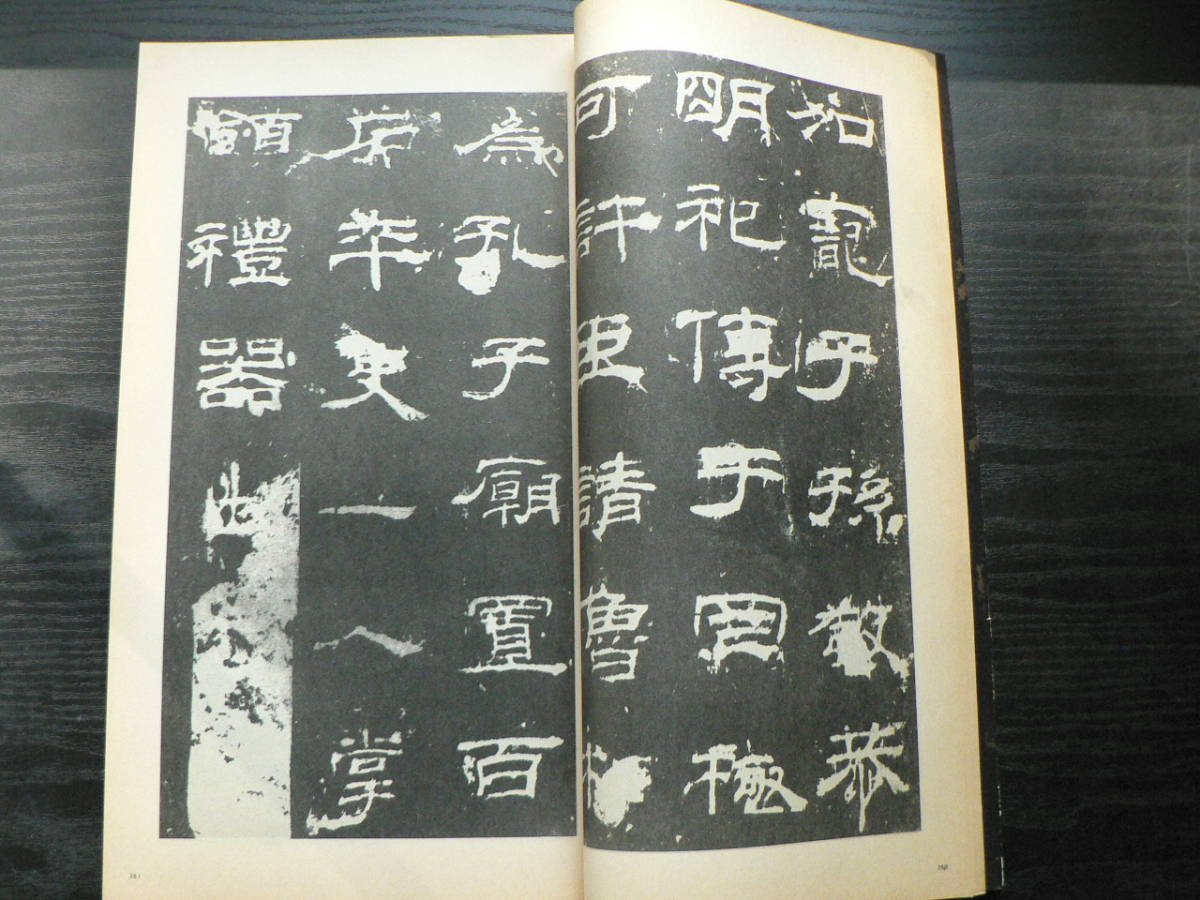 加寵子孫敬恭
明祀傳于罔極
可許臣請魯相
為孔子廟置百
石卒史一人掌
領禮器出